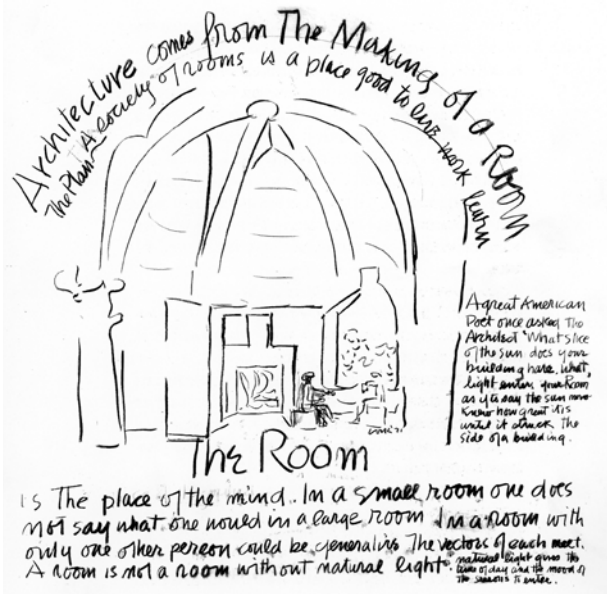 Architecture comes from The Making of a Room
The Plan A society of rooms is a place good to live work learn
A great American
Poet once asked The
Architect 'What slice
of the sun does your
building have. What
light enters your Room
as if to say the sun never
knew how great it is
until it struck the
side of a building.
The Room
is The place of the mind. In a small room one does
not say what one would in a large room In a room with
only one other person could be generative The vectors of each meet.
A room is not a room without natural light. natural light gives the
time of day and the mood of
the seasons to enter.